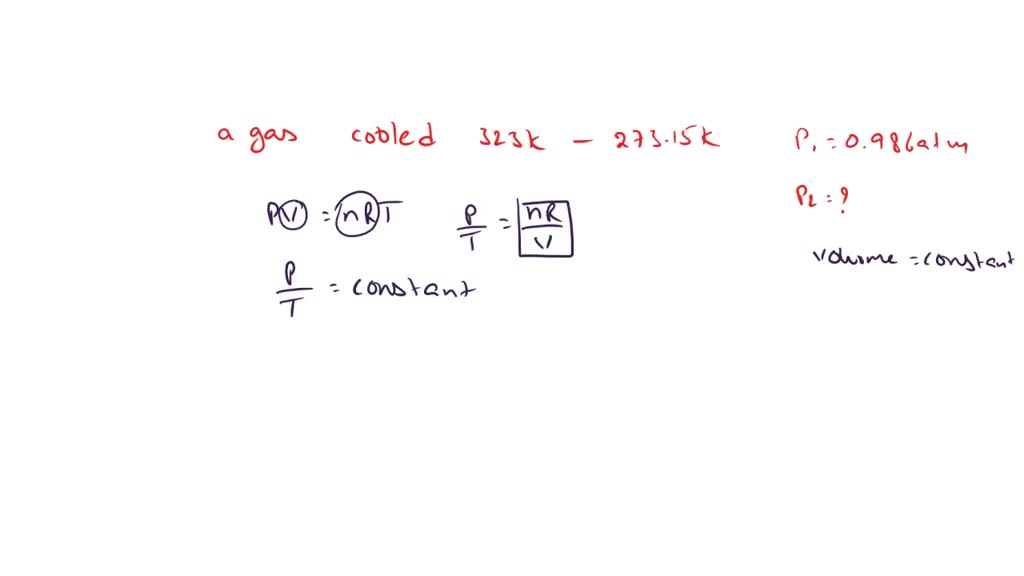 a gas cooled 323k – 273.15k P₁ = 0.986atm
P₂ = ?
PV = nRT P/T = nR/V
volume = constant
P/T = constant